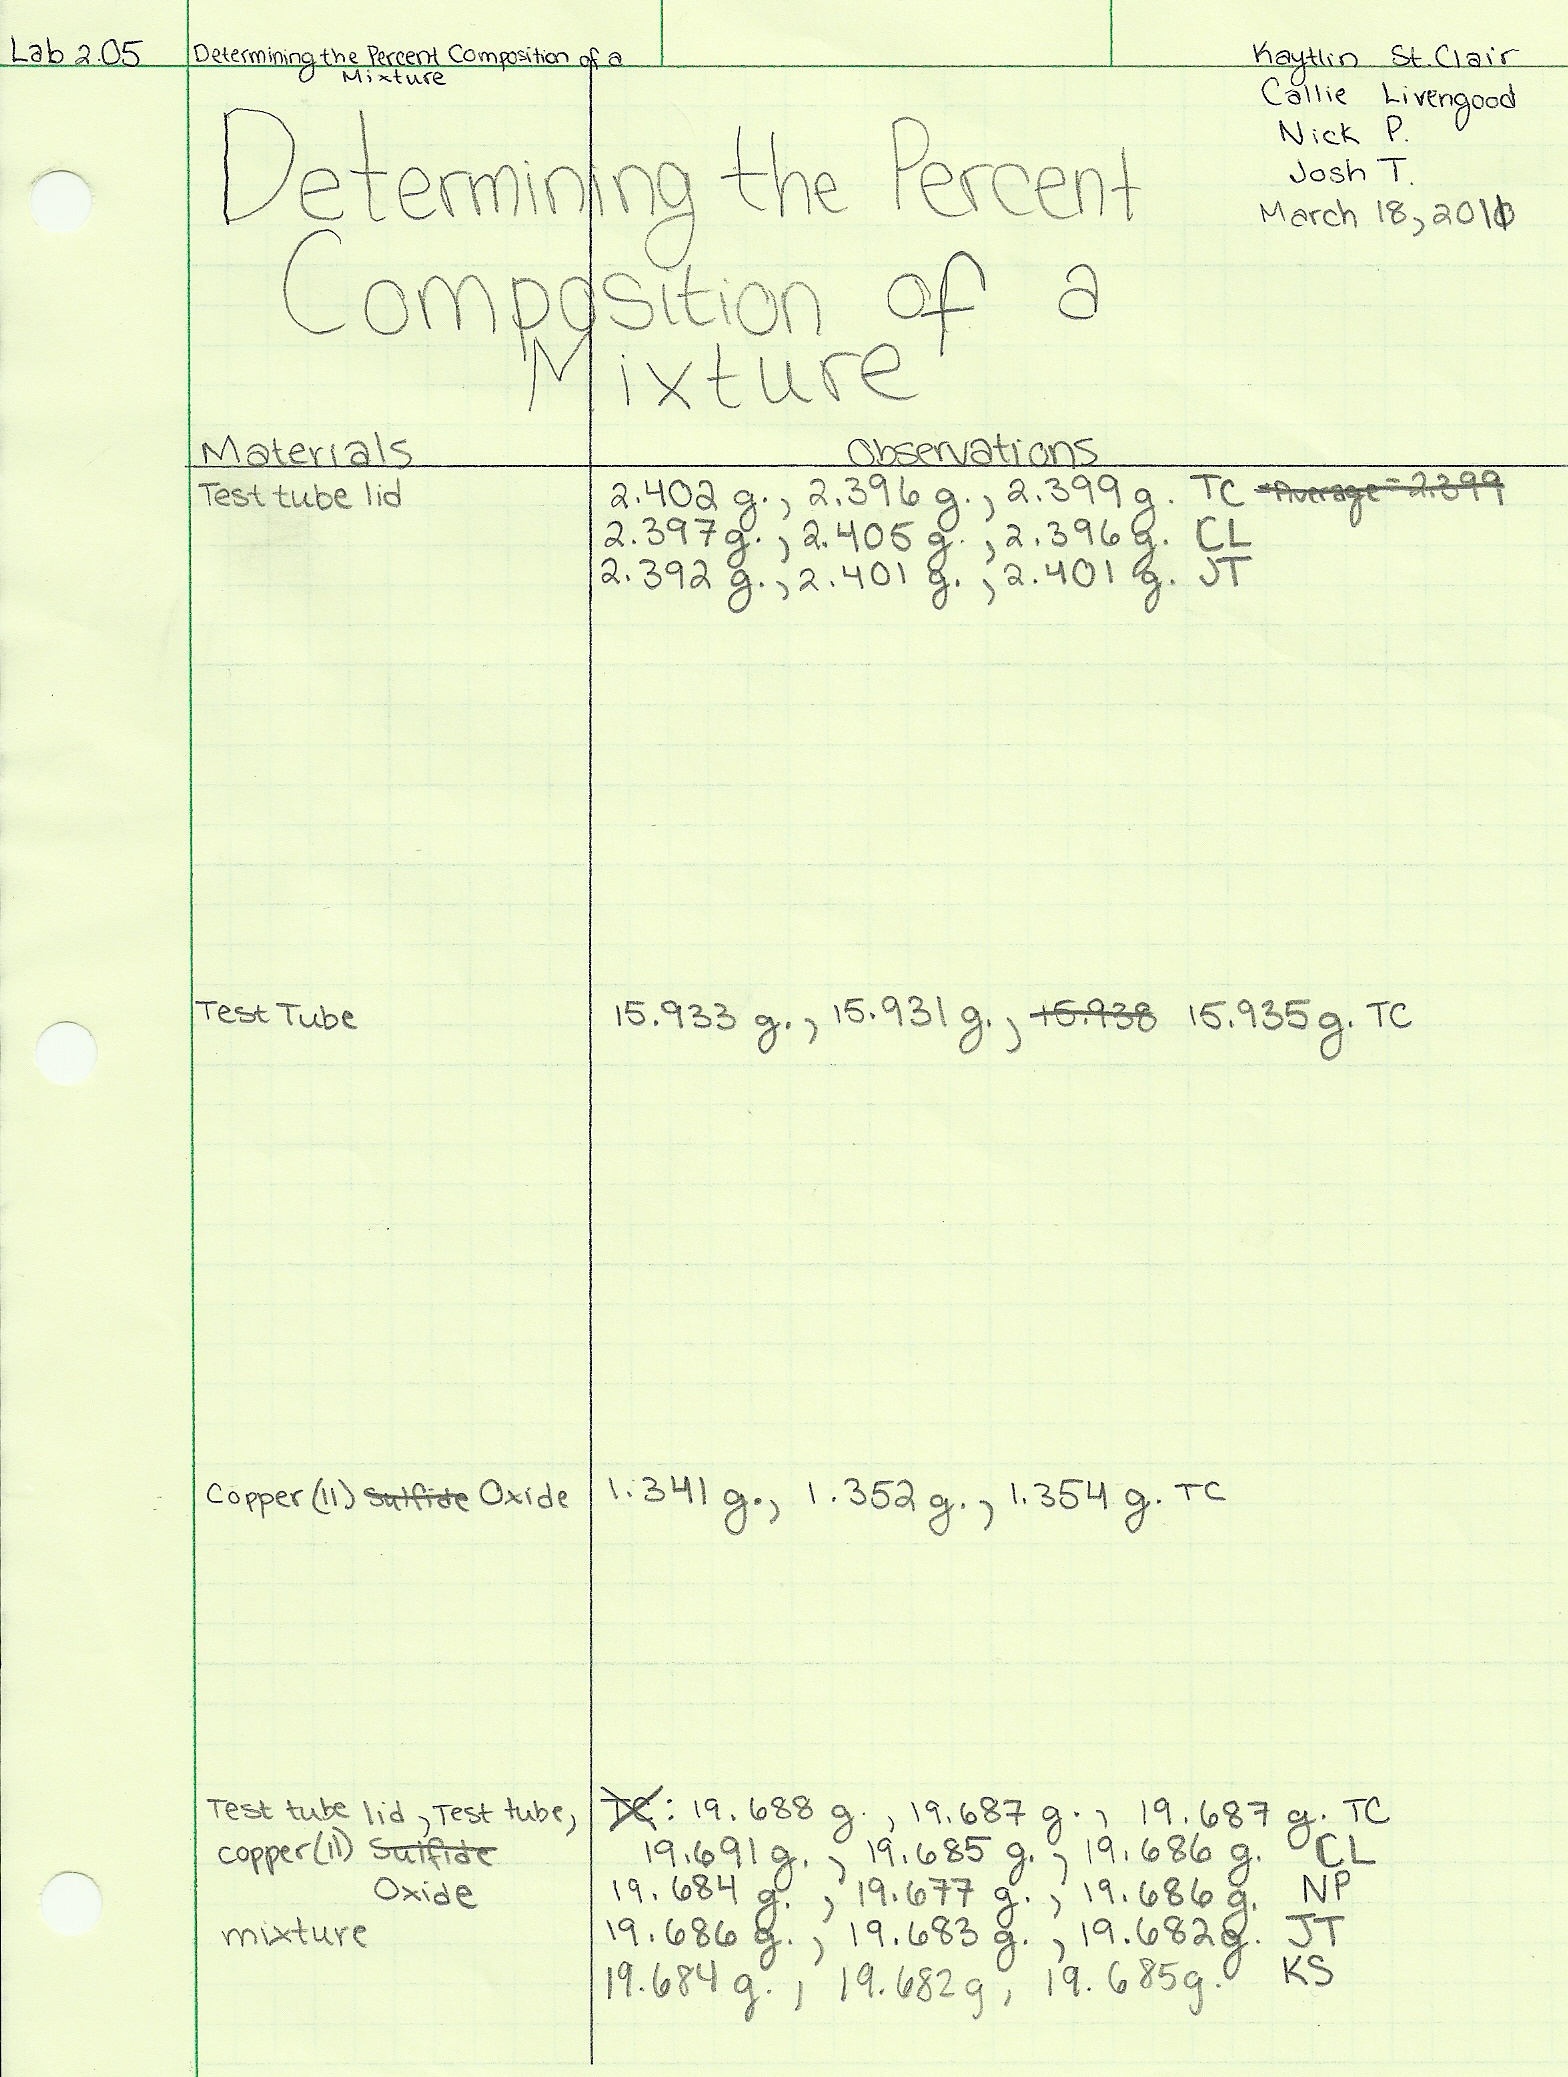 Lab 2.05 Determining the Percent Composition of a
Mixture
Kaytlin St. Clair
Callie Livengood
Nick P.
Josh T.
March 18, 2010
Determining the Percent
Composition of a
Mixture
Materials Observations
Test tube lid 2.402 g., 2.396 g., 2.399 g. TC Average = 2.399
2.397 g., 2.405 g., 2.396 g. CL
2.392 g., 2.401 g., 2.401 g. JT
Test Tube 15.933 g., 15.931 g., 15.938 15.935 g. TC
Copper (11) Sulfide Oxide 1.341 g., 1.352 g., 1.354 g. TC
Test tube lid, Test tube, TC: 19.688 g., 19.687 g., 19.687 g. TC
copper (11) Sulfide 19.691 g., 19.685 g., 19.686 g. CL
Oxide 19.684 g., 19.677 g., 19.686 g. NP
mixture 19.686 g., 19.683 g., 19.682 g. JT
19.684 g., 19.682 g, 19.685 g. KS